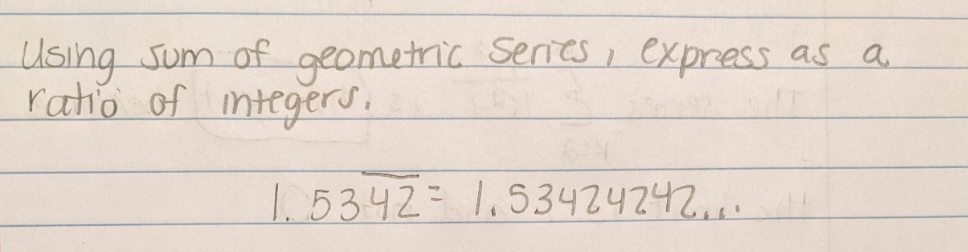 Using sum of geometric series, express as a
ratio of integers.
1.53\overline{42} = 1.53424242...